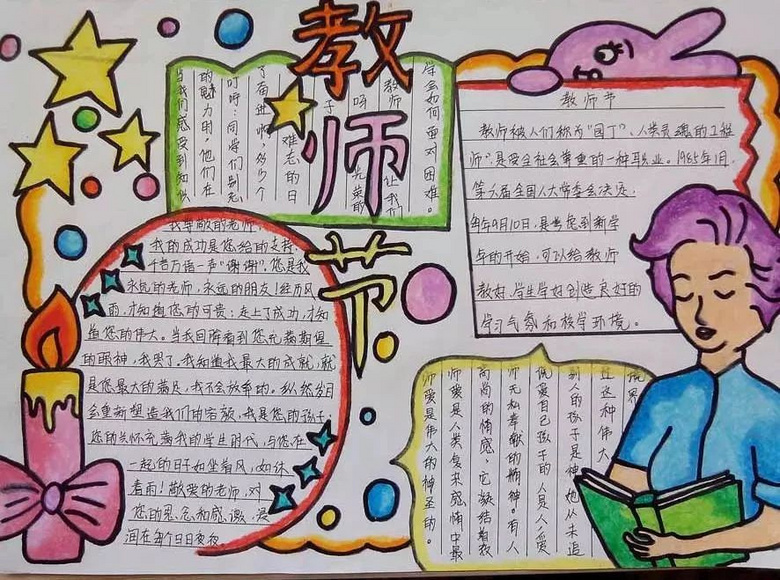 教师节
学会如何面对困难。
教师
让我们
难忘的日
了奋进啊，多少个
叮咛：同学们别忘
的魅力用，他们在
当我们感受到知识
教师节
教师被人们称为“园丁”、人类灵魂的工程
师”，是受全社会尊重的一种职业。1985年1月，
第六届全国人大常委会决定，
每年9月10日，是考虑到新学
年的开始，可以给教师
教好、学生学好创造良好的
学习气氛和校学环境。
我尊敬的老师
我的成功是您给的支持，
千言万语一声“谢谢”。您是我
永远的老师，永远的朋友！经历风
雨，才知道您的可贵；走上了成功，才知
道您的伟大。当我回眸看到您充满期望
的眼神，我哭了。我知道我最大的成就，就
是您最大的满足，我不会放弃的。纵然岁月
会重新塑造我们的容颜，我是您的孩子；
您的关怀充满我的学生时代，与您在
一起的日子如坐春风，如沐
春雨！敬爱的老师，对
您的思念和感激，浸
润在每个日日夜夜
过这种伟大
别人的孩子是神她从未追
说爱自己孩子的人是人，爱
师无私奉献的精神。有人
高尚的情感，它凝结着教
师爱是人类复杂感情中最
师爱是伟大的神圣的。